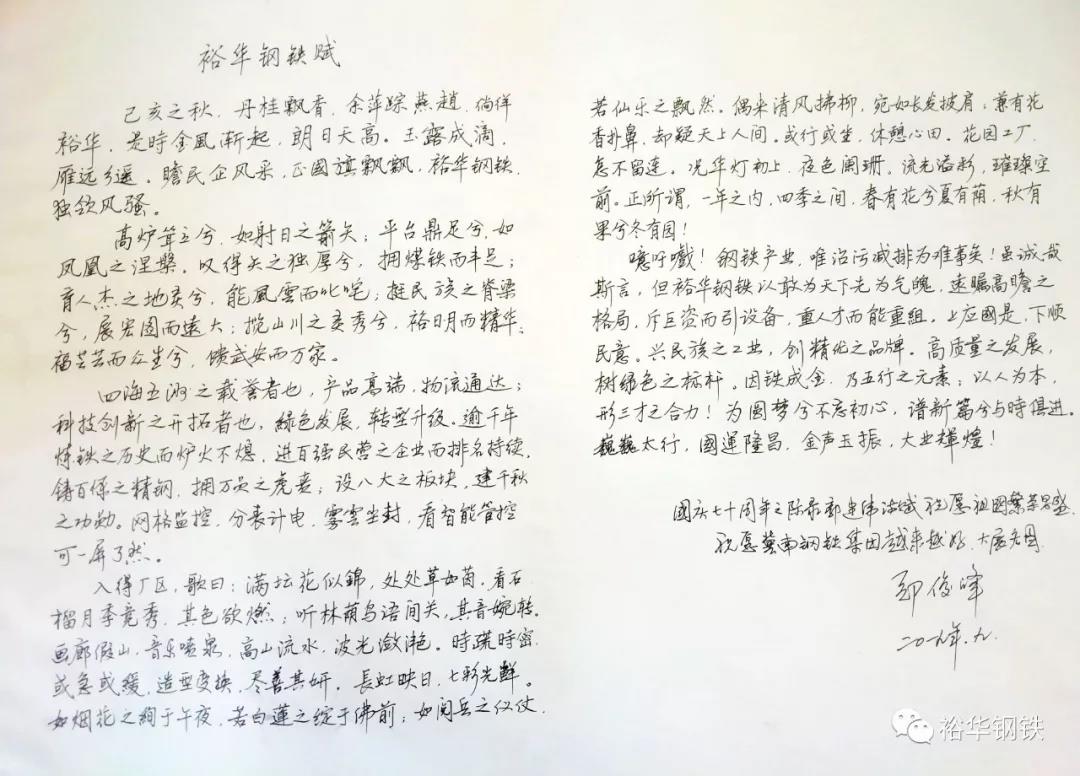 裕华钢铁赋
己亥之秋，丹桂飘香，余萍踪燕趙，徜徉
裕华，是時金風漸起，朗日天高。玉露成滴，
雁远乡遥。瞻民企风采，正國旗飘飘，裕华钢铁，
独领风骚。
高炉耸立兮，如射日之箭矢；平台鼎足兮，如
凤凰之涅槃。叹得天之独厚兮，拥煤铁而丰足；
育人杰之地灵兮，能風雲而叱咤；挺民族之脊梁
兮，展宏图而遠大；揽山川之灵秀兮，裕日月而精华，
福芸芸而众生兮，馈武安而万家。
四海五湖之载誉者也，产品高端，物流通达；
科技创新之开拓者也，綠色发展，转型升级。逾千年
炼铁之历史而炉火不熄，进百强民营之企业而排名持续，
鋳百係之精钢，拥万员之虎贲；设八大之板块，建千秋
之功勋。网格监控，分表计电，雾雲尘封，看智能管控
可一屏了然。
入得厂区，歌曰：满坛花似錦，处处草如茵，看石
榴月季竞秀，其色欲燃；听林荫鸟语间关，其音婉转。
画廊假山，音乐喷泉，高山流水，波光潋滟。時疏時密，
或急或緩，造型变换，尽善其妍。長虹映日，七彩光鲜。
如烟花之绚于午夜，若白蓮之绽于佛前；如阅兵之仪仗，
若仙乐之飘然。偶来清风拂柳，宛如长发披肩；兼有花
香扑鼻，却疑天上人间。或行或坐，休憩心田。花园工厂，
怎不留连。况华灯初上，夜色阑珊。流光溢彩，璀璨空
前。正所谓，一年之内，四季之间，春有花兮夏有荫，秋有
果兮冬有园！
噫吁戲！钢铁产业，唯治污减排为难事矣！虽诚哉
斯言，但裕华钢铁以敢为天下先为气魄，遠瞩高瞻之
格局，斥巨资而引设备，重人才而能重组。上应國是，下顺
民意。兴民族之工业，创精化之品牌。高质量之发展，
树绿色之标杆。因铁成金，乃五行之元素；以人为本，
形三才之合力！为圆梦兮不忘初心，谱新篇兮与時俱进。
巍巍太行，國運隆昌，金声玉振，大业輝煌！
國庆七十周年之际录郭建伟诗赋 祝愿祖國繁荣昌盛，
祝愿冀南钢铁集团越来越好，大展宏图
郭俊峰
二〇一九年.九.
裕华钢铁